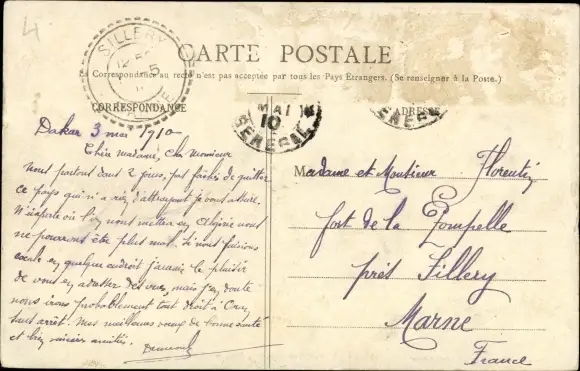 4
SILLERY
CARTE POSTALE
Correspondance au recto n'est pas acceptée par tous les Pays Étrangers. (Se renseigner à la Poste.)
CORRESPONDANCE
ADRESSE
MAI
10
SENEGAL
Dakar 3 mai 1910
Chère madame, cher Monsieur
Nous partons dans 2 jours, pas fachés de quitter
ce pays qui n'a rien d'attrayant je vous assure.
N'importe où l'on nous mettra en Algérie nous
ne pourrons être plus mal. Si nous faisions
escale en quelque endroit j'aurais le plaisir
de vous en adresser des vues, mais j'en doute
nous irons probablement tout droit à Oran
sans arrêt. Mes meilleurs vœux de bonne santé
et bien sincères amitiés.
Madame et Monsieur Florentin
fort de la Pompelle
près Sillery
Marne
France